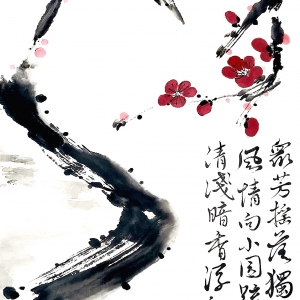 眾芳搖落獨
風情向小園
清淺暗香浮